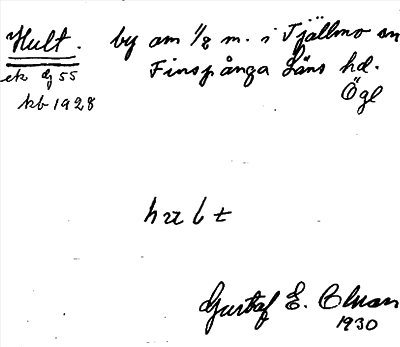 Hult. by om 1/2 m. i Tjällmo sn
Finspånga Läns hd.
Ögl
ek bl 55
kb 1928
hult
Gustaf E. Olman
1930